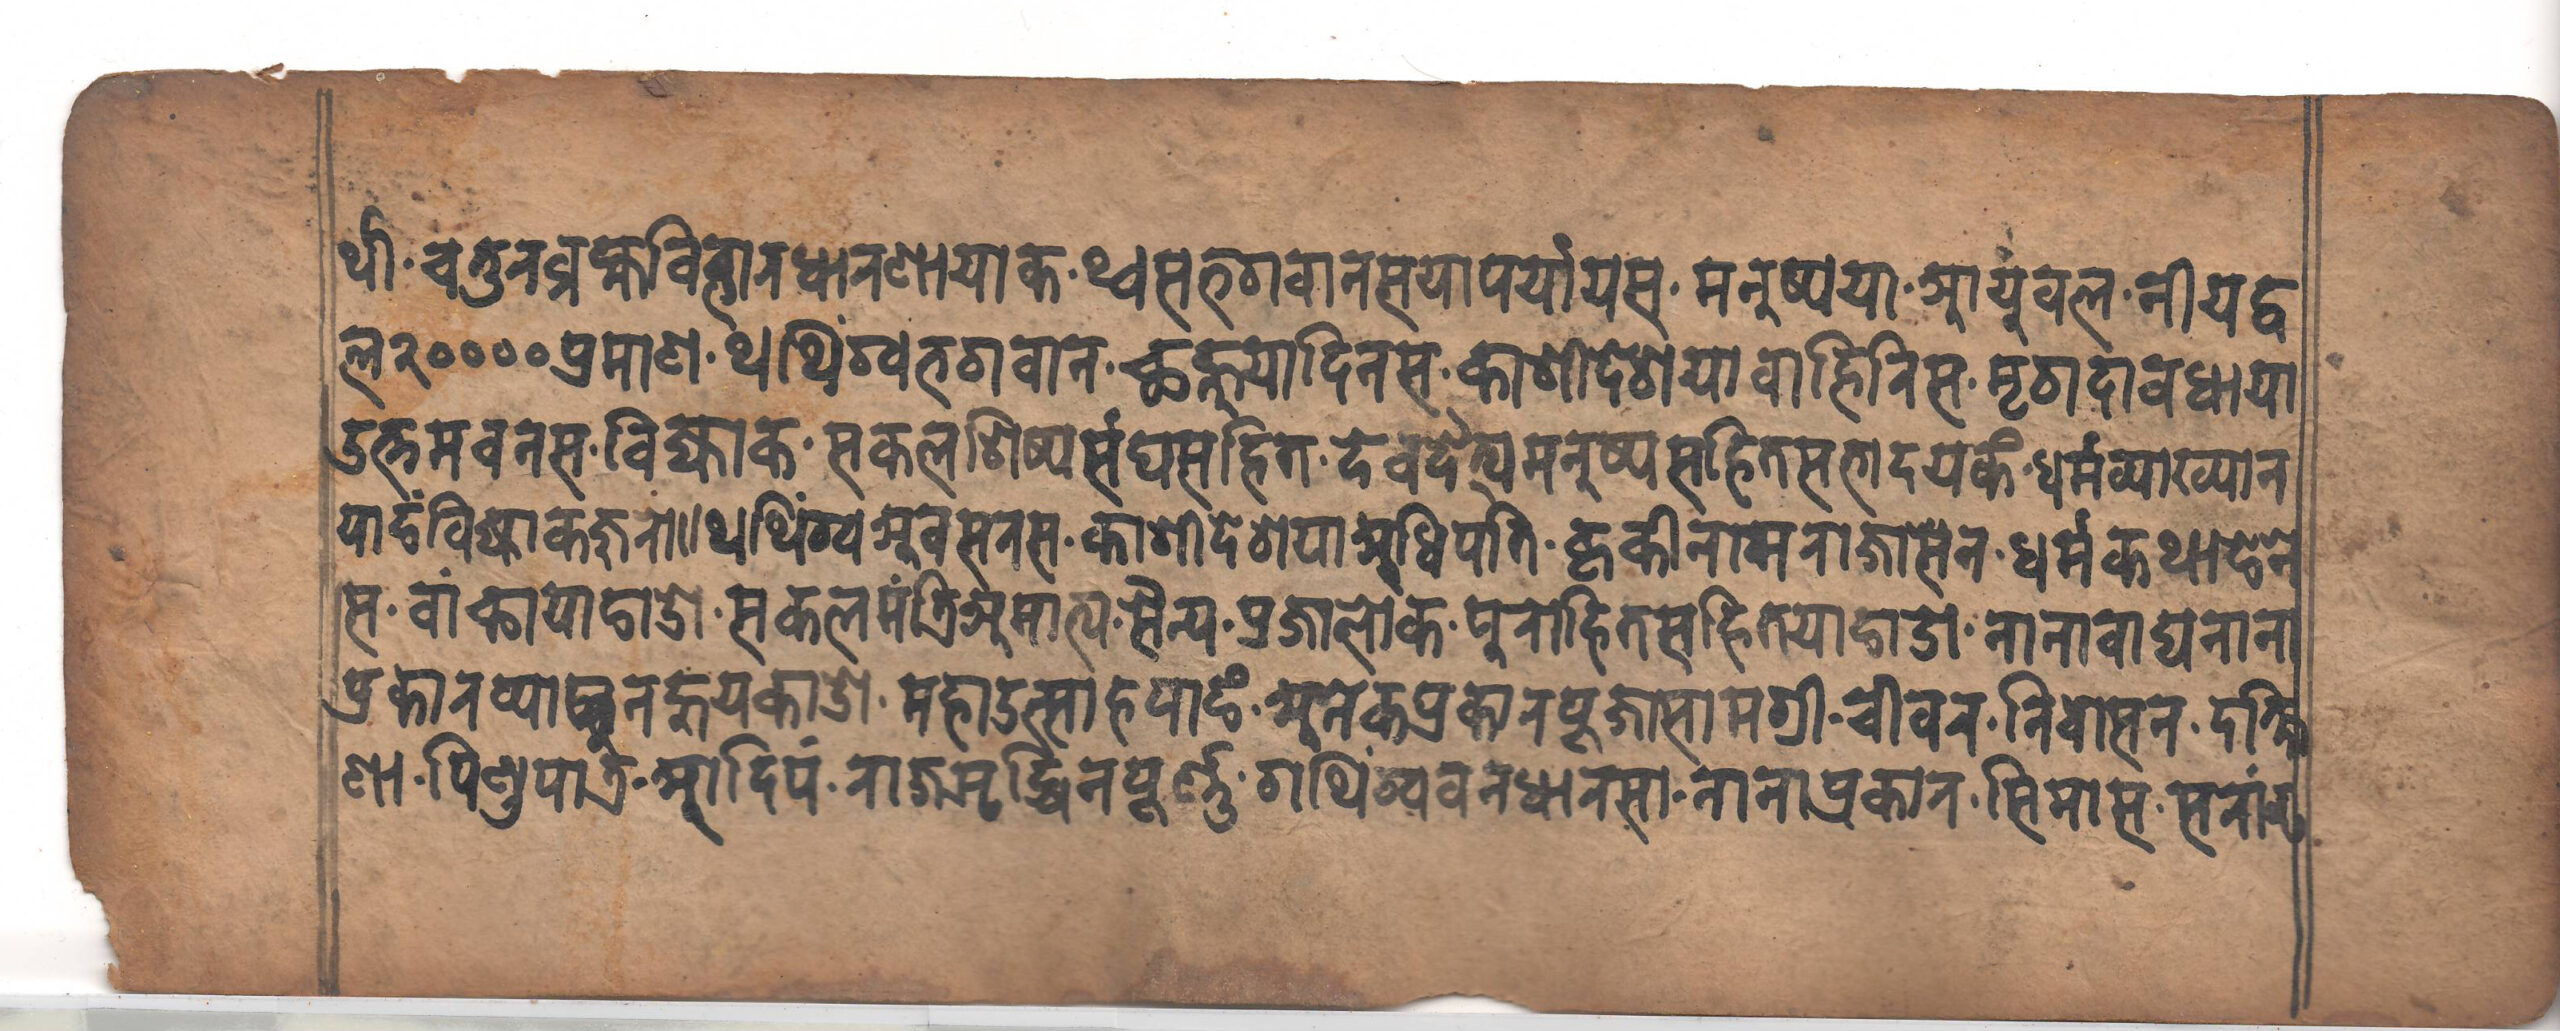 थीं · चतुनब्रह्मविहानधानणायाक · थ्वसभगवानसयापर्यायस · मनुष्यया · आयुंवल · नीयद्व
ल२०००० प्रमाण · थथिंग्वभगवान · छह्नुयादिनस · काशीदेशयावाहिनिस · मृगदावधाया
उत्तमवनस · विज्याक · सकलशिष्यसंघसहित · देवदैत्यमनुष्यसहितसभादयकं · धर्मव्याख्यान
याङंविज्याकजुनो॥ थथिंग्व अवसनस · काशीदेशयाअधिपति · कृकीनामनाजासेन · धर्मकथाङेने
स · वांछायाङाओ · सकलमंत्रिअमात्य · सैन्य · प्रजालोक · पुनोहितसहितयाङाओ · नानावाद्यनाना
प्रकानव्याखुनह्नुयकाओ · महाउत्साहयाङं · अनेकप्रकानपूजासामग्री · चीवन · निवासन · दक्षि
णा · पिण्डपात्र · आदिपं · नाजऋद्धिनपूर्ण्ण · गथिंग्ववनधानसा · नानाप्रकान · सिमास · सनां